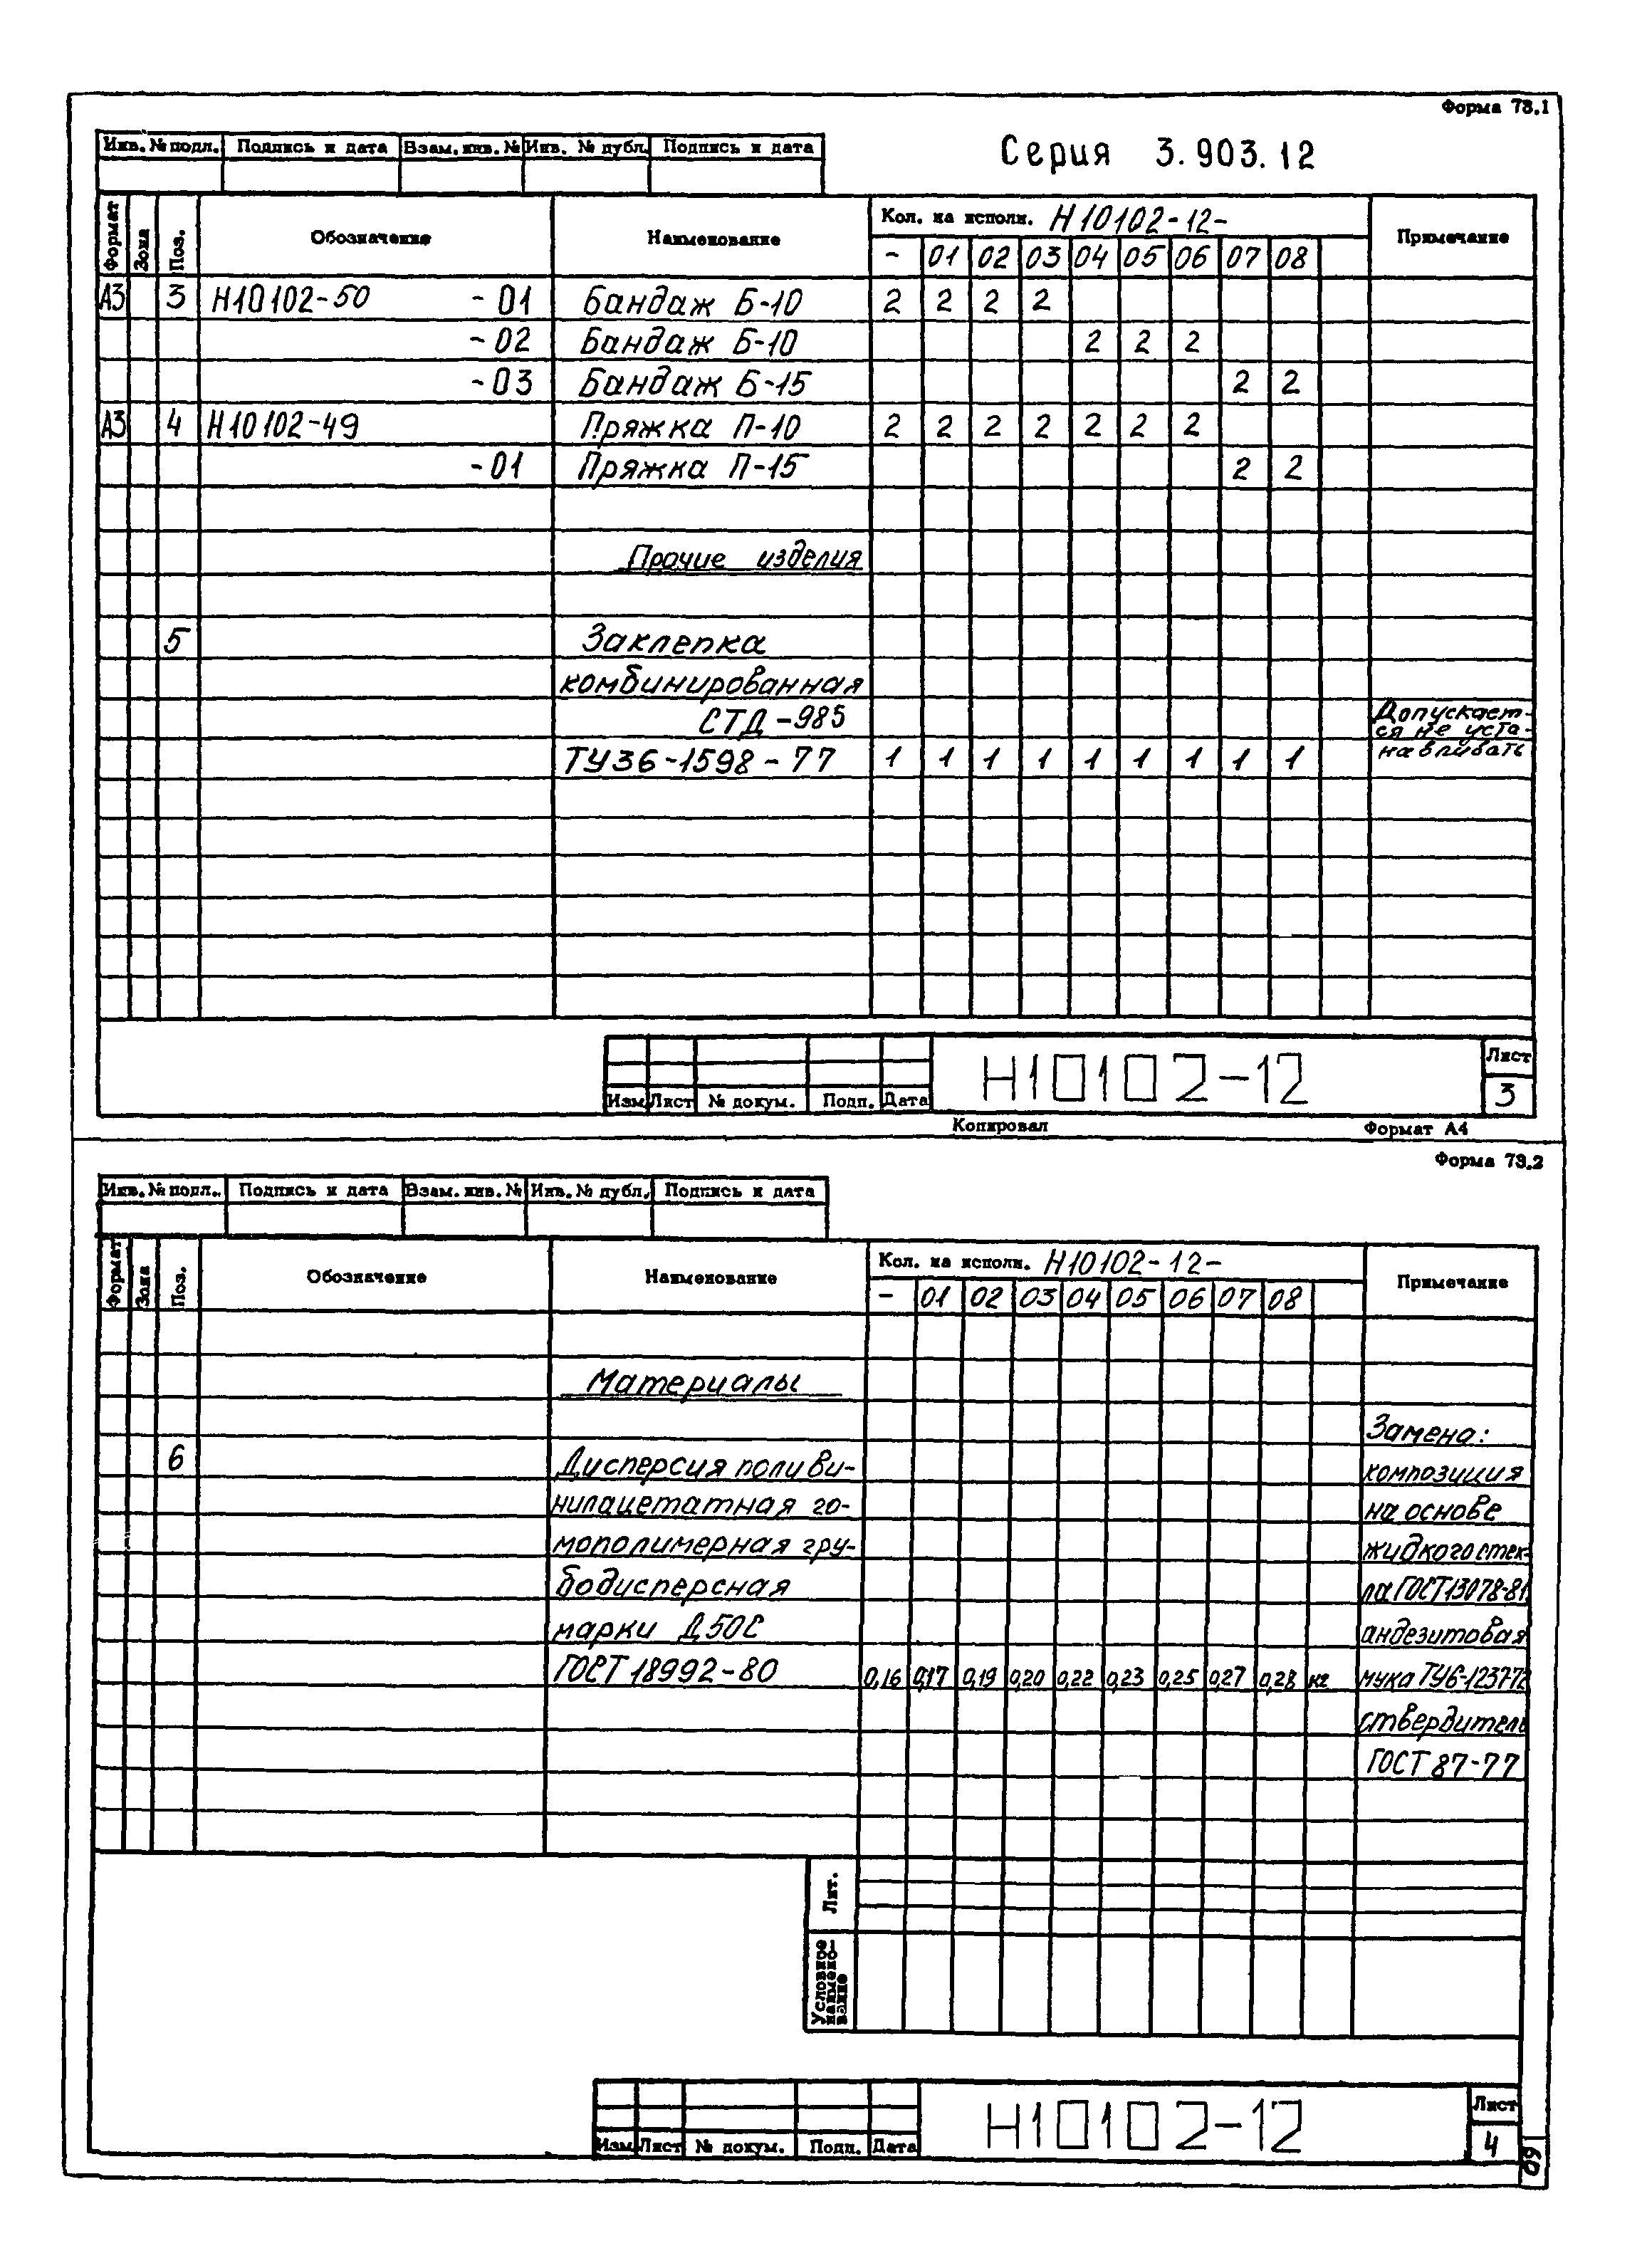 Форма 73.1
Серия 3.903.12
Инв. № подл. Подпись и дата Взам. инв. № Инв. № дубл. Подпись и дата
Формат Зона Поз. Обозначение Наименование Кол. на исполн. Н10102-12- Примечание
- 01 02 03 04 05 06 07 08
А3 3 Н10102-50 -01 Бандаж Б-10 2 2 2 2
-02 Бандаж Б-10 2 2 2
-03 Бандаж Б-15 2 2
А3 4 Н10102-49 Пряжка П-10 2 2 2 2 2 2 2
-01 Пряжка П-15 2 2
Прочие изделия
5 Заклепка
комбинированная
СТД-985 Допускает-
ся не уста-
ТУ36-1598-77 1 1 1 1 1 1 1 1 1 навливать
Изм Лист № докум. Подп. Дата Н10102-12 Лист 3
Копировал Формат А4
Форма 73.2
Инв. № подл. Подпись и дата Взам. инв. № Инв. № дубл. Подпись и дата
Формат Зона Поз. Обозначение Наименование Кол. на исполн. Н10102-12- Примечание
- 01 02 03 04 05 06 07 08
Материалы
Замена:
6 Дисперсия поливи- композиция
нилацетатная го- на основе
мополимерная гру- жидкого стек-
бодисперсная ла ГОСТ13078-81,
марки Д50С андезитовая
ГОСТ 18992-80 0,16 0,17 0,19 0,20 0,22 0,23 0,25 0,27 0,28 кг мука ТУ6-1237-72
ствердитель
ГОСТ 87-77
Лит.
Условное наимено-вание
Изм Лист № докум. Подп. Дата Н10102-12 Лист 4
60